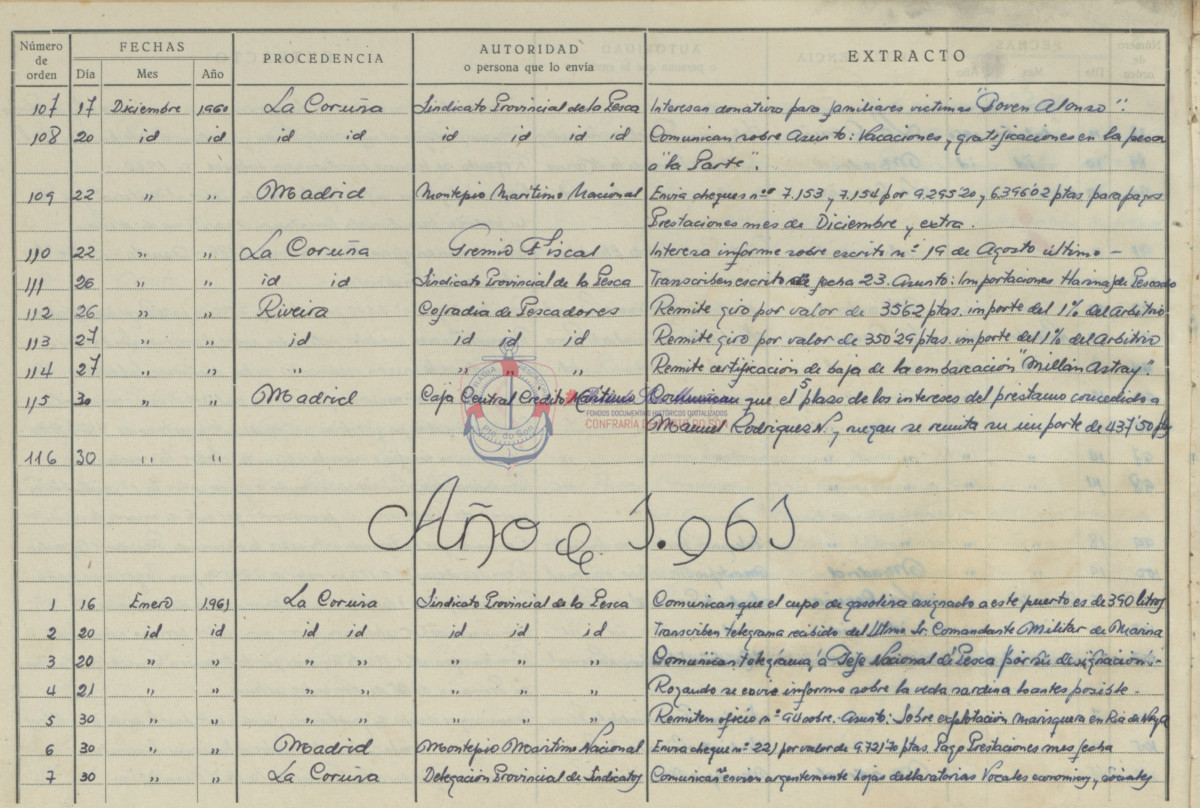 Número de orden FECHAS PROCEDENCIA AUTORIDAD o persona que lo envía EXTRACTO
Día Mes Año
107 17 Diciembre 1960 La Coruña Sindicato Provincial de la Pesca Interesan donativo para familiares victimas "Joven Alonso".
108 20 id id id id id id id id Comunican sobre Asunto: Vacaciones y gratificaciones en la pesca
a "la Parte".
109 22 " " Madrid Montepio Maritimo Nacional Envia cheques nos 7.153 y 7.154 por 9.295'20 y 6.396'02 ptas para pagos
Prestaciones mes de Diciembre y extra.
110 22 " " La Coruña Gremio Fiscal Interesa informe sobre escrito nº 19 de Agosto último -
111 26 " " id id Sindicato Provincial de la Pesca Transcriben escrito de fecha 23. Asunto: Importaciones Harina de Pescado
112 26 " " Riveira Cofradia de Pescadores Remite giro por valor de 35'62 ptas. importe del 1% del Arbitrio
113 27 " " id id id id Remite giro por valor de 350'29 ptas. importe del 1% del Arbitrio
114 27 " " " " " " Remite certificación de baja de la embarcación "Millán Astray"
115 30 " " Madrid Caja Central Credito Maritimo Comunican que el 5 plazo de los intereses del prestamo concedido a
Manuel Rodriguez N. y ruegan se remita su importe de 437'50 pts
116 30 " "
FONDOS DOCUMENTAIS HISTÓRICOS DIXITALIZADOS
CONFRARÍA DE PORTO DO SON
Año de 1.961
1 16 Enero 1961 La Coruña Sindicato Provincial de la Pesca Comunican que el cupo de gasolina asignado a este puerto es de 390 litros
2 20 id id id id id id id Transcriben telegrama recibido del Iltmo Sr. Comandante Militar de Marina
3 20 " " " " " " " Comunican telegrama a Jefe Nacional de Pesca por su designación.-
4 21 " " " " " " " Rogando se envie informe sobre la veda sardina lo antes posible.
5 30 " " " " " " " Remiten oficio nº 94 sobre Asunto: Sobre explotación marisquera en Ria de Noya
6 30 " " Madrid Montepio Maritimo Nacional Envia cheque nº 221 por valor de 9.721'70 ptas. Pago Prestaciones mes fecha
7 30 " " La Coruña Delegación Provincial de Sindicatos Comunican envien urgentemente hojas declaratorias Vocales economicos y sociales